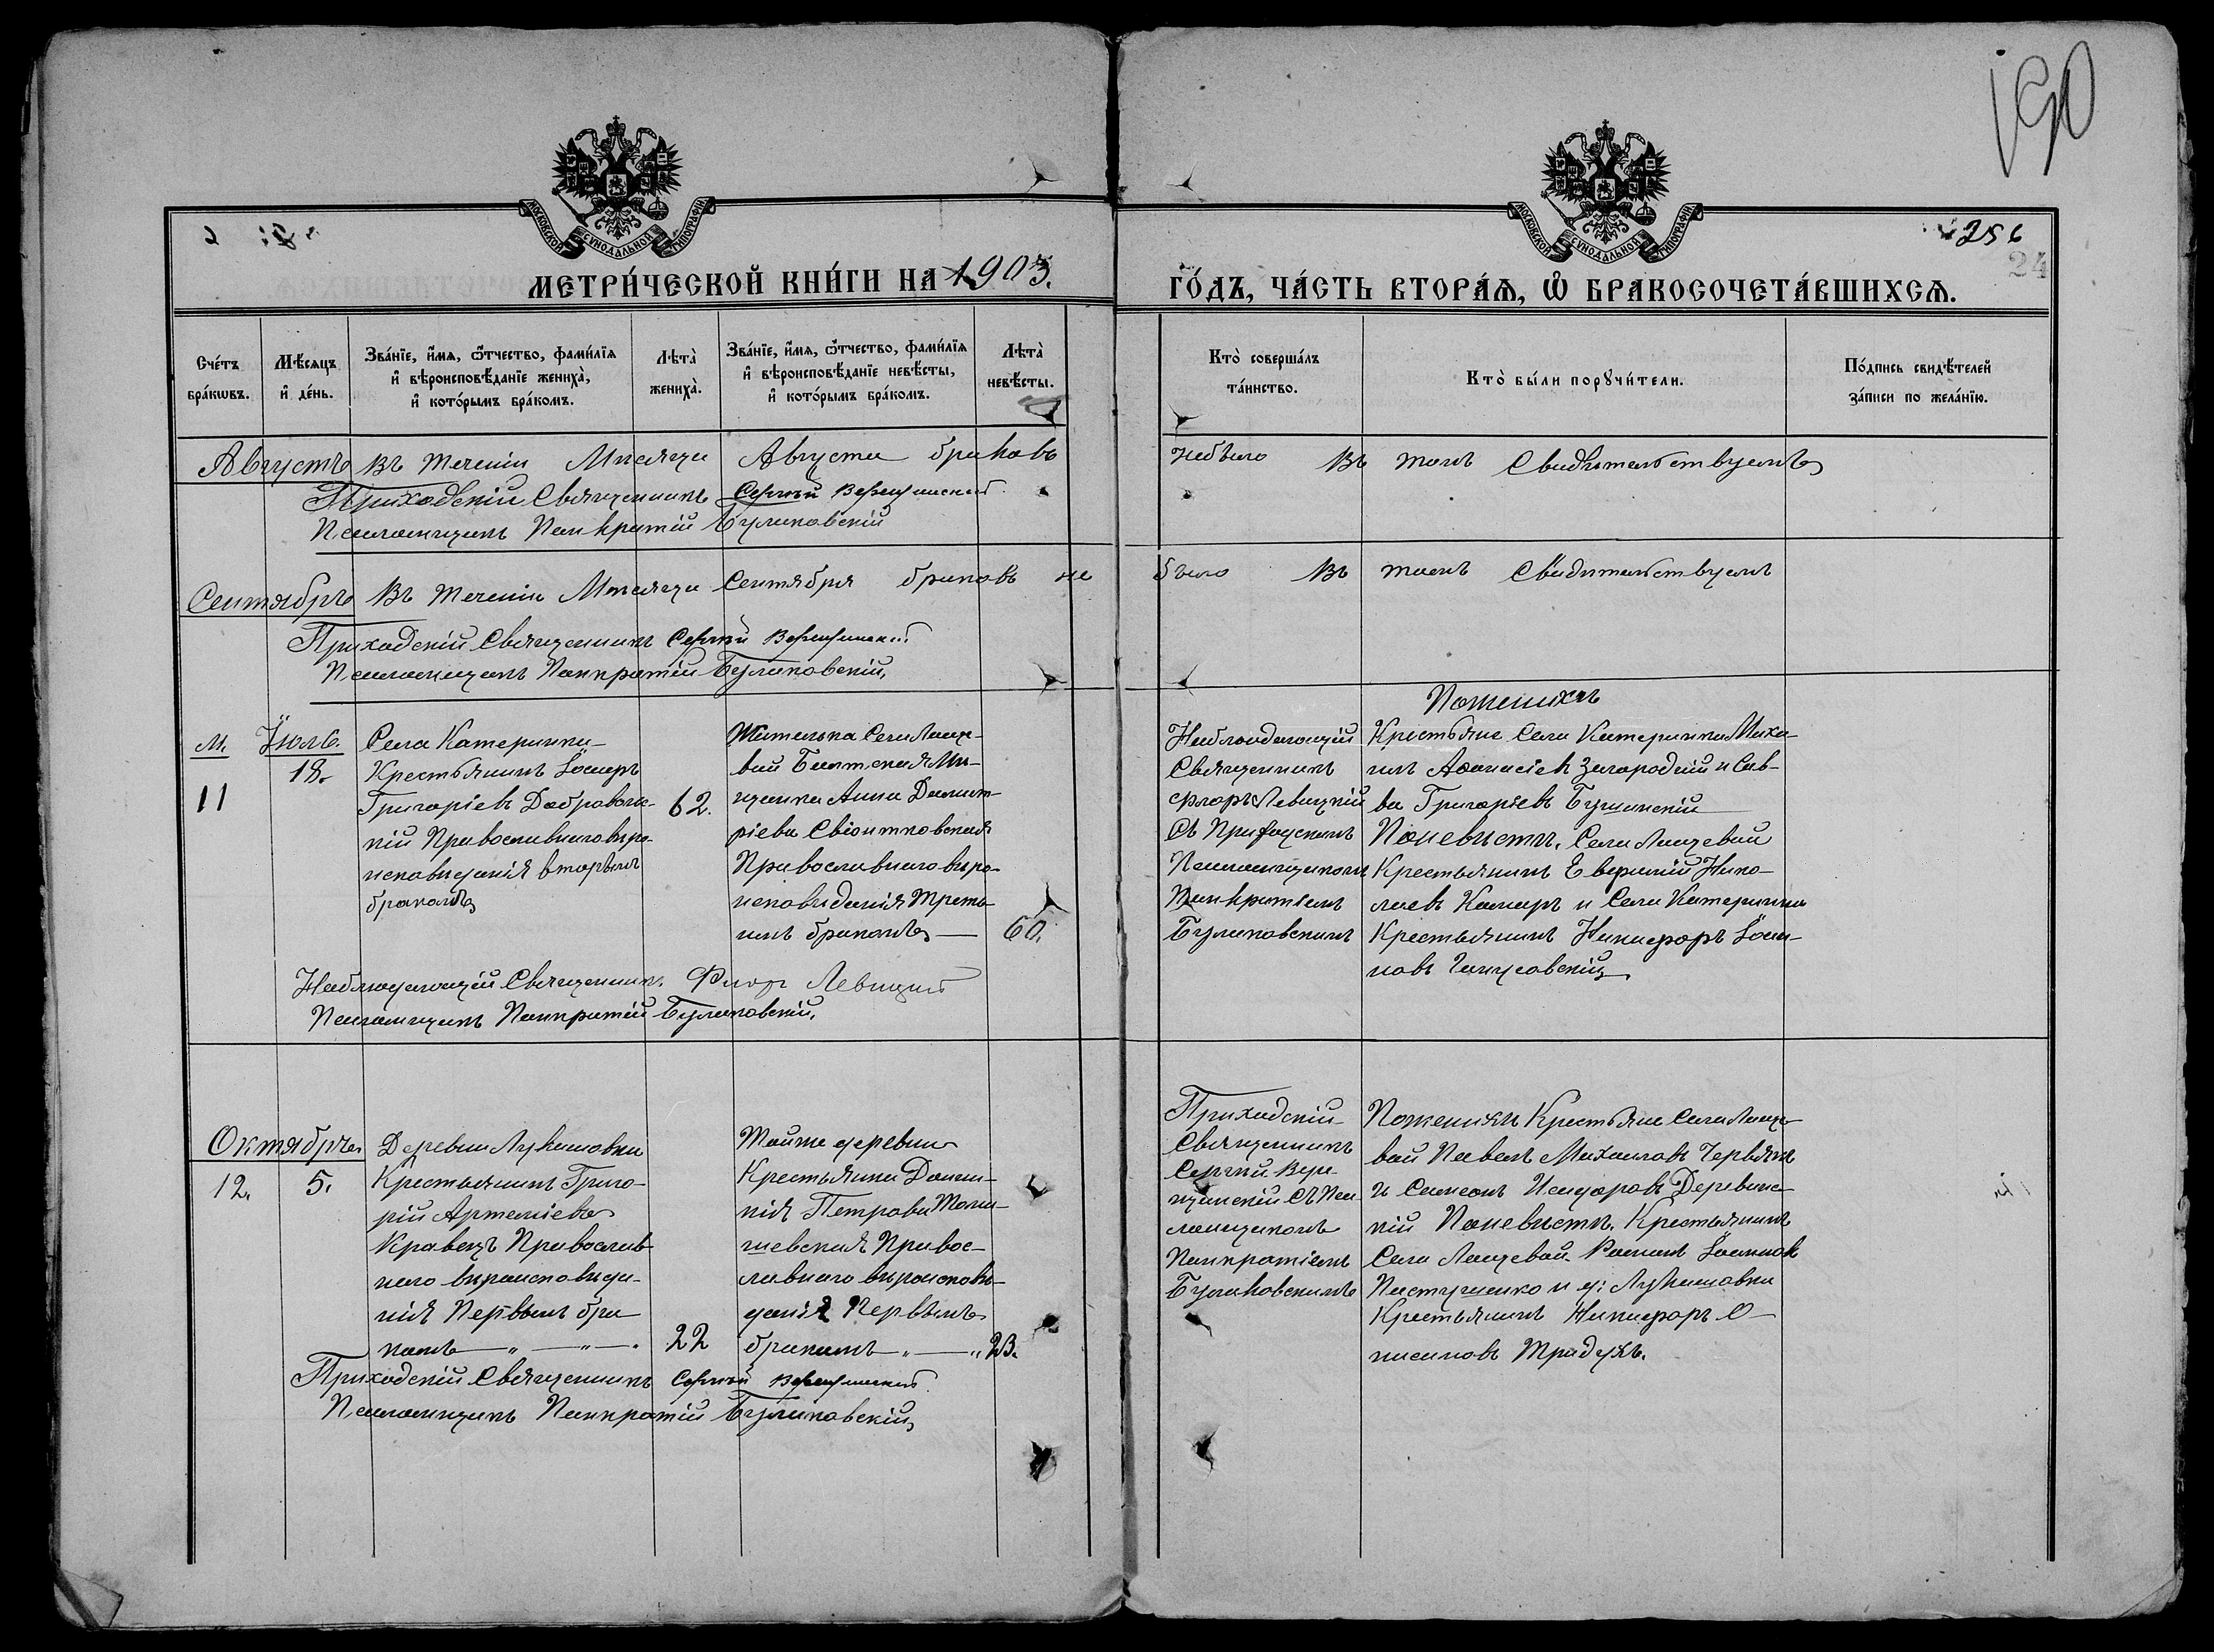 190
256
24
МОСКОВСКОЙ СѴНОДАЛЬНОЙ ТИПОГРАФІИ
МОСКОВСКОЙ СѴНОДАЛЬНОЙ ТИПОГРАФІИ
МЕТРИ́ЧЕСКОЙ КНИ́ГИ НА 1903.
ГО́ДЪ, ЧА́СТЬ ВТОРА́Ѧ, Ѡ҆ БРАКОСОЧЕТА́ВШИХСѦ.
Сче́тъ бра́кѡвъ.
Мѣ́сяцъ и҆ де́нь.
Зва́нїе, и҆́мѧ, ѻ҆́тчество, фамѝлїѧ и҆ вѣроисповѣ́данїе жениха̀, и҆ кото́рымъ бра́комъ.
Лѣта̀ жениха̀.
Зва́нїе, и҆́мѧ, ѻ҆́тчество, фамѝлїѧ и҆ вѣроисповѣ́данїе невѣ́сты, и҆ кото́рымъ бра́комъ.
Лѣта̀ невѣ́сты.
Кто̀ соверша́лъ та́инство.
Кто̀ бы́ли порꙋчи́тели.
По́дпись свидѣ́телей за́писи по жела́нїю.
Августъ Въ теченіи Мисяца Августа браковъ небыло въ томъ Свидѣтельствуемъ
Приходскій Священникъ Сергѣй Верещинскій
Псаломщикъ Панкратій Булаковскій
Сентябрь Въ теченіи Мисяца Сентября браковъ не было въ томъ Свидительствуемъ
Приходскій Священникъ Сергѣй Верещинскій
Псаломщикъ Панкратій Булаковскій,
м. Іюль.
11
18.
Села Катеринки
Крестьянинъ Іосифъ
Григоріевъ Доброволь-
кій Православнаго виро-
исповиданія вторымъ
бракомъ
62.
Жителька Села Лище-
вой Балтская Ми-
щанка Анна Димит-
ріева
Православнаго виро-
исповиданія трет-
имъ бракомъ
60.
Наблюдающій
Священникъ
Флоръ Левицкій
Съ
Псаломщикомъ
Панкратіемъ
Булаковскимъ
Пожениху
Крестьяне Села Катеринки Миха-
илъ Афанасіевъ Загородній и Сав-
ва Григоріевъ
Поневисти. Села Лищевой
Крестьянинъ Нико-
лаевъ и Села Катеринки
Крестьянинъ Никифоръ
Наблюдающій Священникъ Флоръ Левицкій
Псаломщикъ Панкратій Булаковскій,
Октябрь
12.
5.
Деревни Лукашовки
Крестьянинъ Григо-
рій Артеміевъ
Кравецъ Православ
наго вироисповида-
нія Первымъ бра
комъ
22
Тойже деревни
Крестьянка Домни-
кія Петрова
Правос-
лавнаго вироисповѣ-
данія Первымъ
бракомъ
23.
Приходскій
Священникъ
Сергѣй Вере-
щинскій Съ Пса
ломщикомъ
Панкратіемъ
Булаковскимъ
Поженихи Крестьяне Села Лище
вой Павелъ Михаиловъ Червякъ
и Симеонъ Исидоровъ Деревинс-
кій Поневисти. Крестьянинъ
Села Лищевой. Романъ
Пастушенко и д: Лукашовки
Крестьянинъ Никифоръ О-
нисимовъ Традукъ.
Приходскій Священникъ Сергѣй Верещинскій
Псаломщикъ Панкратій Булаковскій